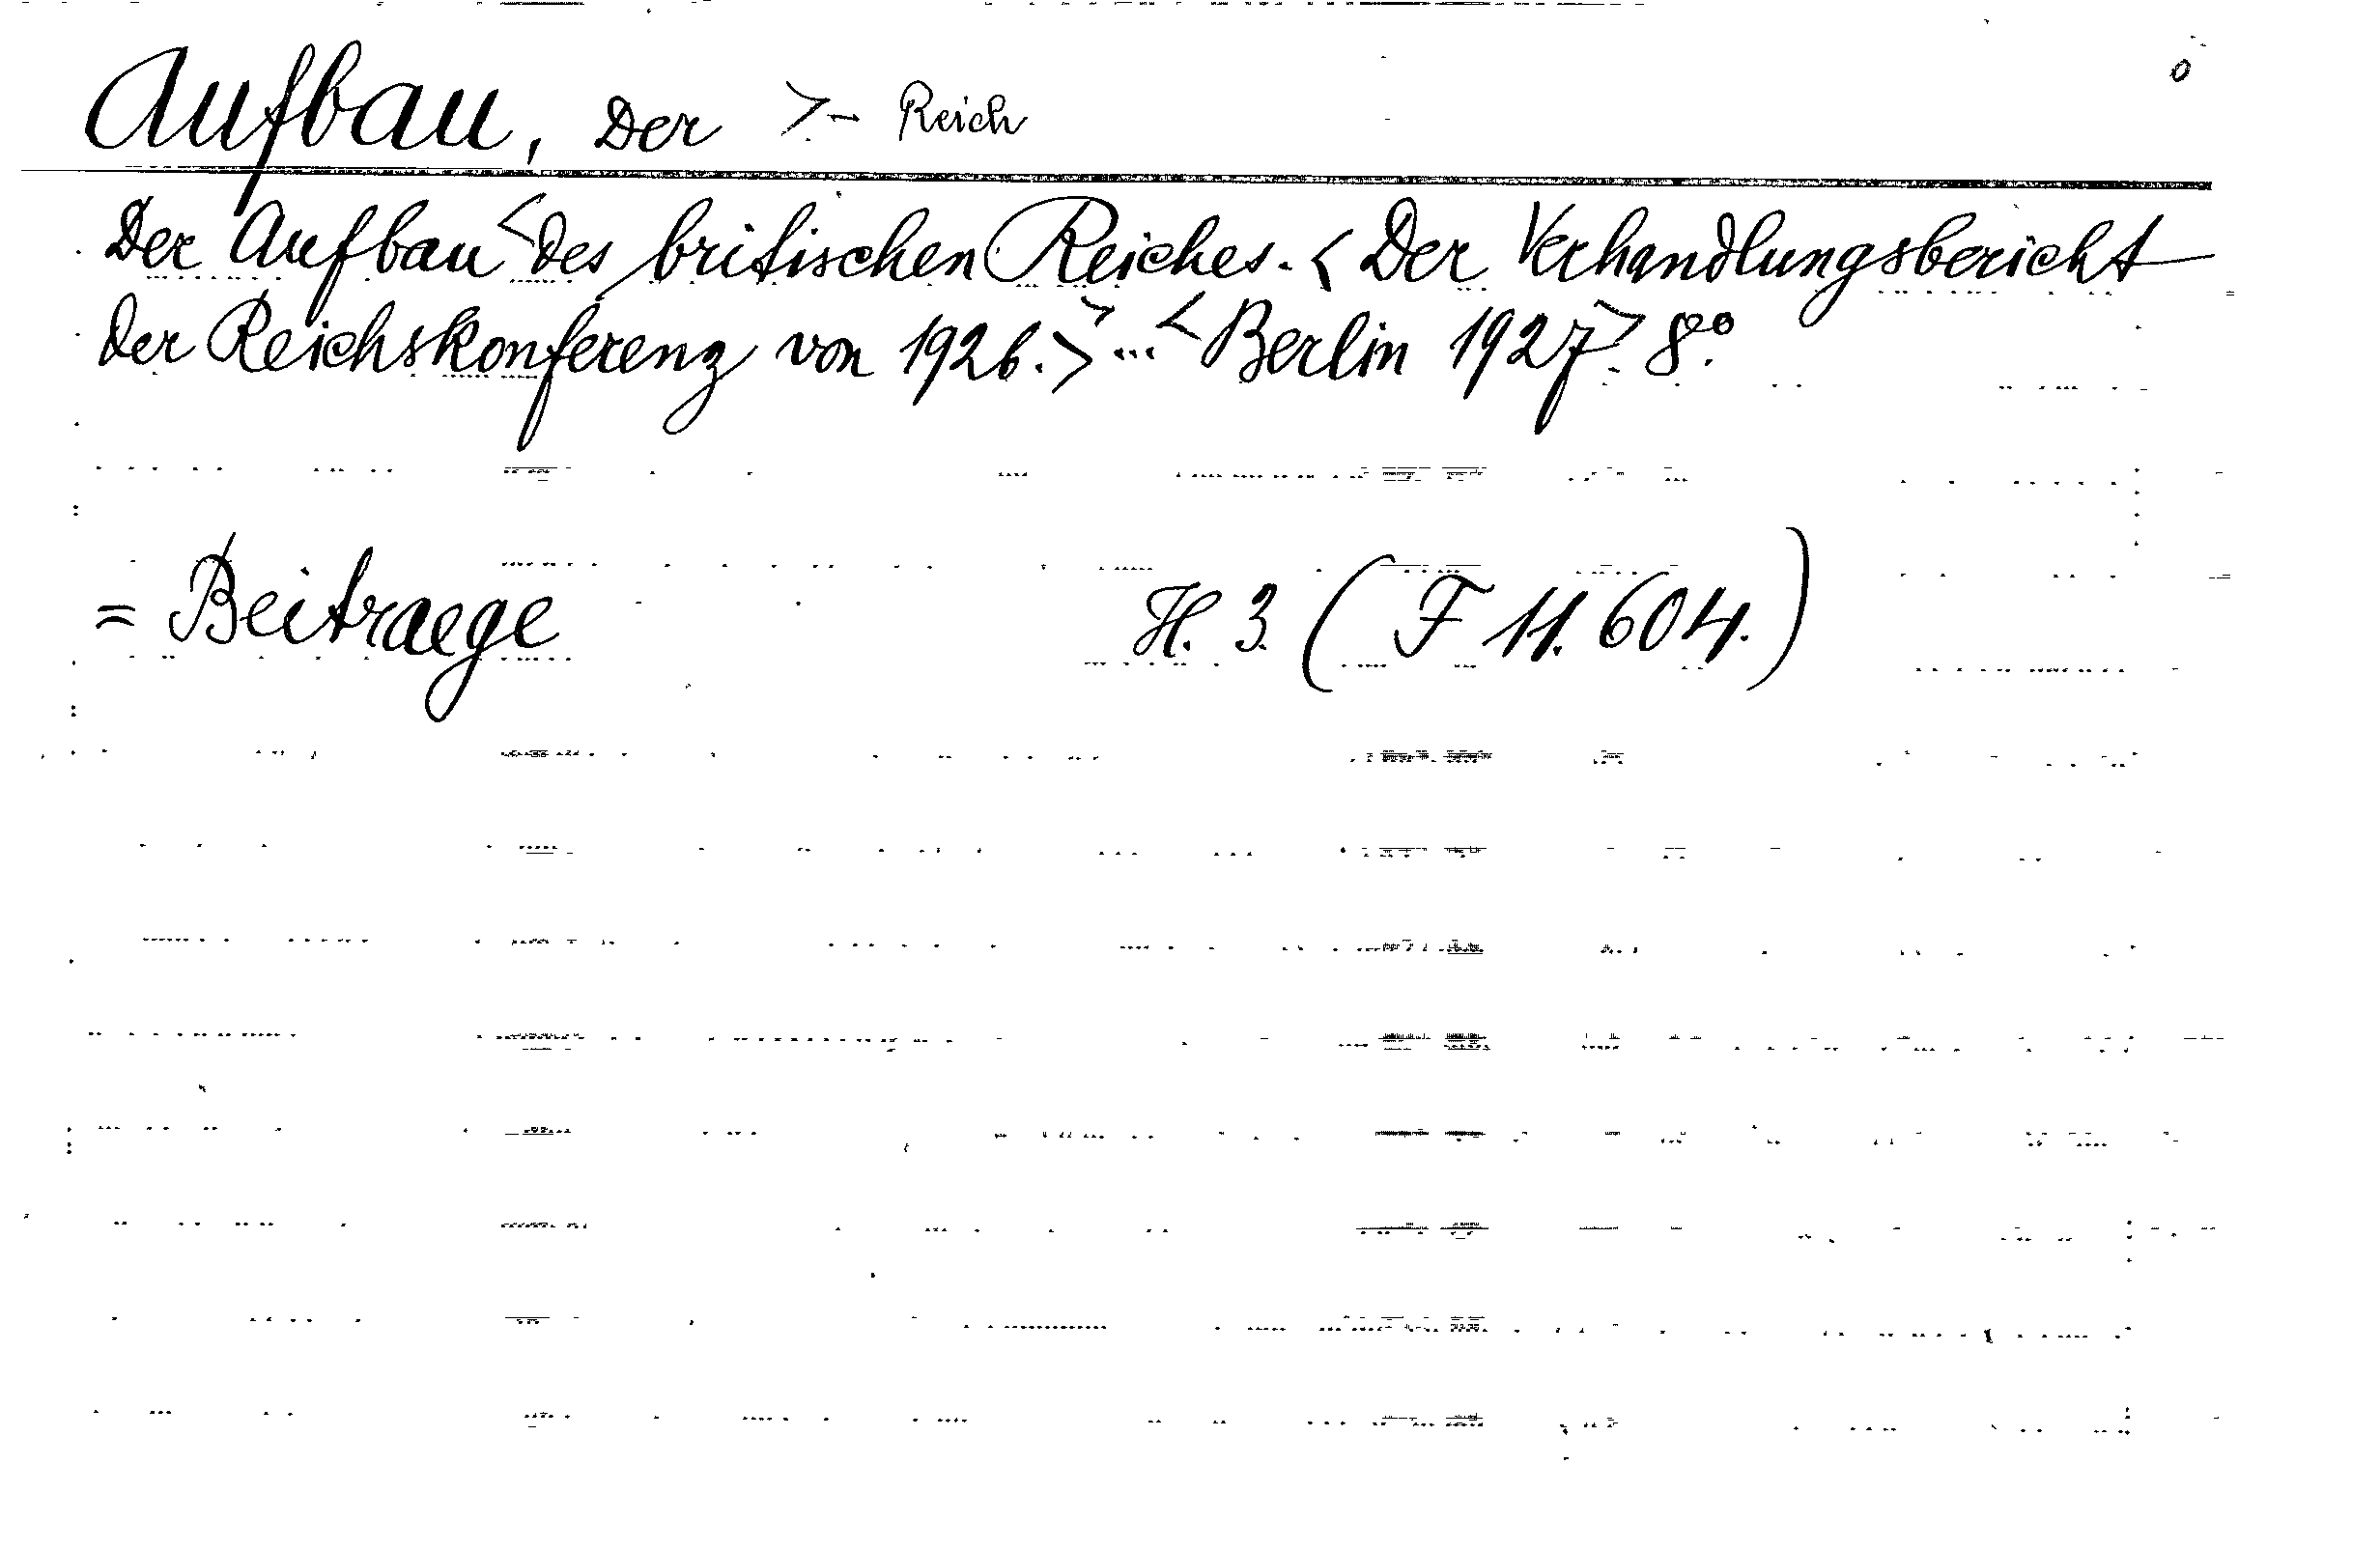 Aufbau, Der >- Reich
o
Der Aufbau < des britischen Reiches. < Der Verhandlungsbericht
der Reichskonferenz von 1926. > > ... < Berlin 1927 >. 8°.
= Beitraege H. 3. ( F 11.604. )